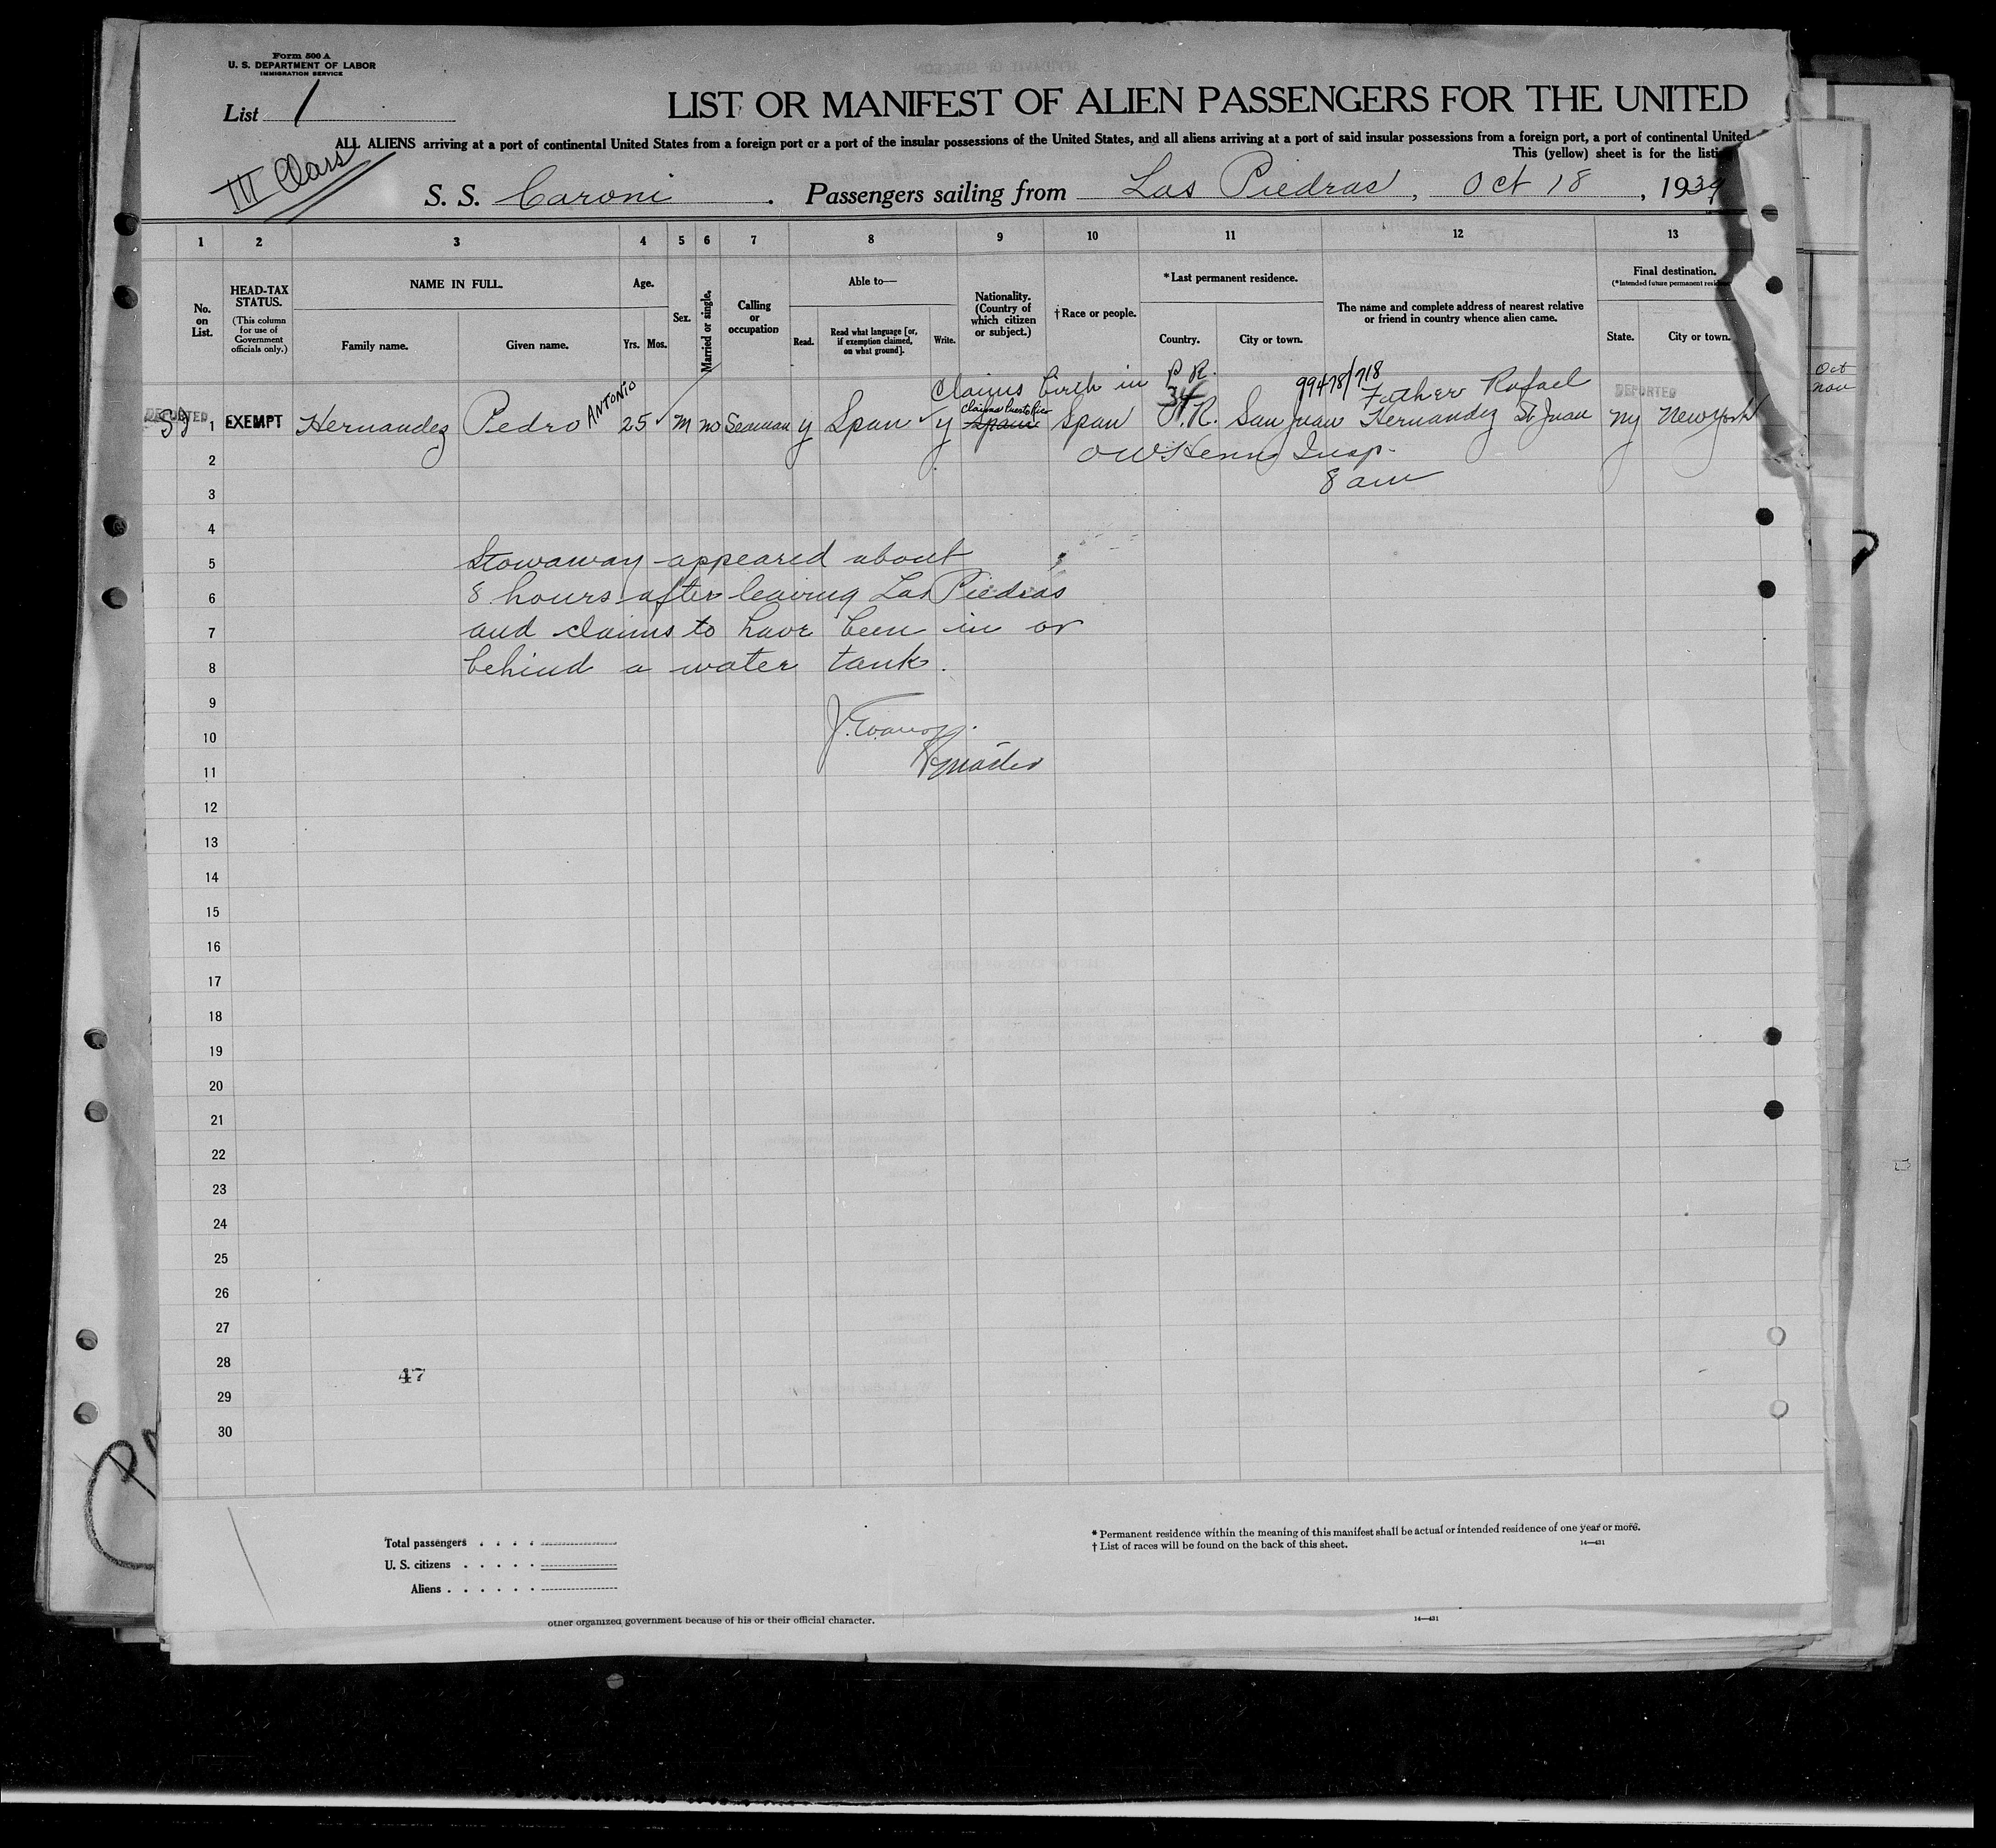 Form 500 A
U. S. DEPARTMENT OF LABOR
IMMIGRATION SERVICE
List 1
LIST OR MANIFEST OF ALIEN PASSENGERS FOR THE UNITED
ALL ALIENS arriving at a port of continental United States from a foreign port or a port of the insular possessions of the United States, and all aliens arriving at a port of said insular possessions from a foreign port, a port of continental United
This (yellow) sheet is for the listi
III Class
S. S. Caroni . Passengers sailing from Las Piedras, Oct 18, 1934
1 2 3 4 5 6 7 8 9 10 11 12 13
No. on List.
HEAD-TAX STATUS.
(This column for use of Government officials only.)
NAME IN FULL.
Family name. Given name.
Age.
Yrs. Mos.
Sex.
Married or single.
Calling or occupation
Able to—
Read. Read what language [or, if exemption claimed, on what ground]. Write.
Nationality. (Country of which citizen or subject.)
†Race or people.
*Last permanent residence.
Country. City or town.
The name and complete address of nearest relative or friend in country whence alien came.
Final destination.
(*Intended future permanent resid
State. City or town.
Oct
Nov
Claims birth in P.R. 34 99478/718 Father Rafael DEPORTED
DEPORTED SJ 1 EXEMPT Hernandez Pedro ANTONIO 25 M no Seaman y Span y Claims Puerto Rico Spain Span P.R. San Juan Hernandez St Juan NY New York
2 Insp.
3 8 am
4
5 Stowaway appeared about
6 8 hours after leaving Las Piedras
7 and claims to have been in or
8 behind a water tank.
9
10 J. Evans
11 Master
12
13
14
15
16
17
18
19
20
21
22
23
24
25
26
27
28 47
29
30
Total passengers . . . .
U. S. citizens . . . . .
Aliens . . . . . .
* Permanent residence within the meaning of this manifest shall be actual or intended residence of one year or more.
† List of races will be found on the back of this sheet. 14—431
other organized government because of his or their official character. 14—431